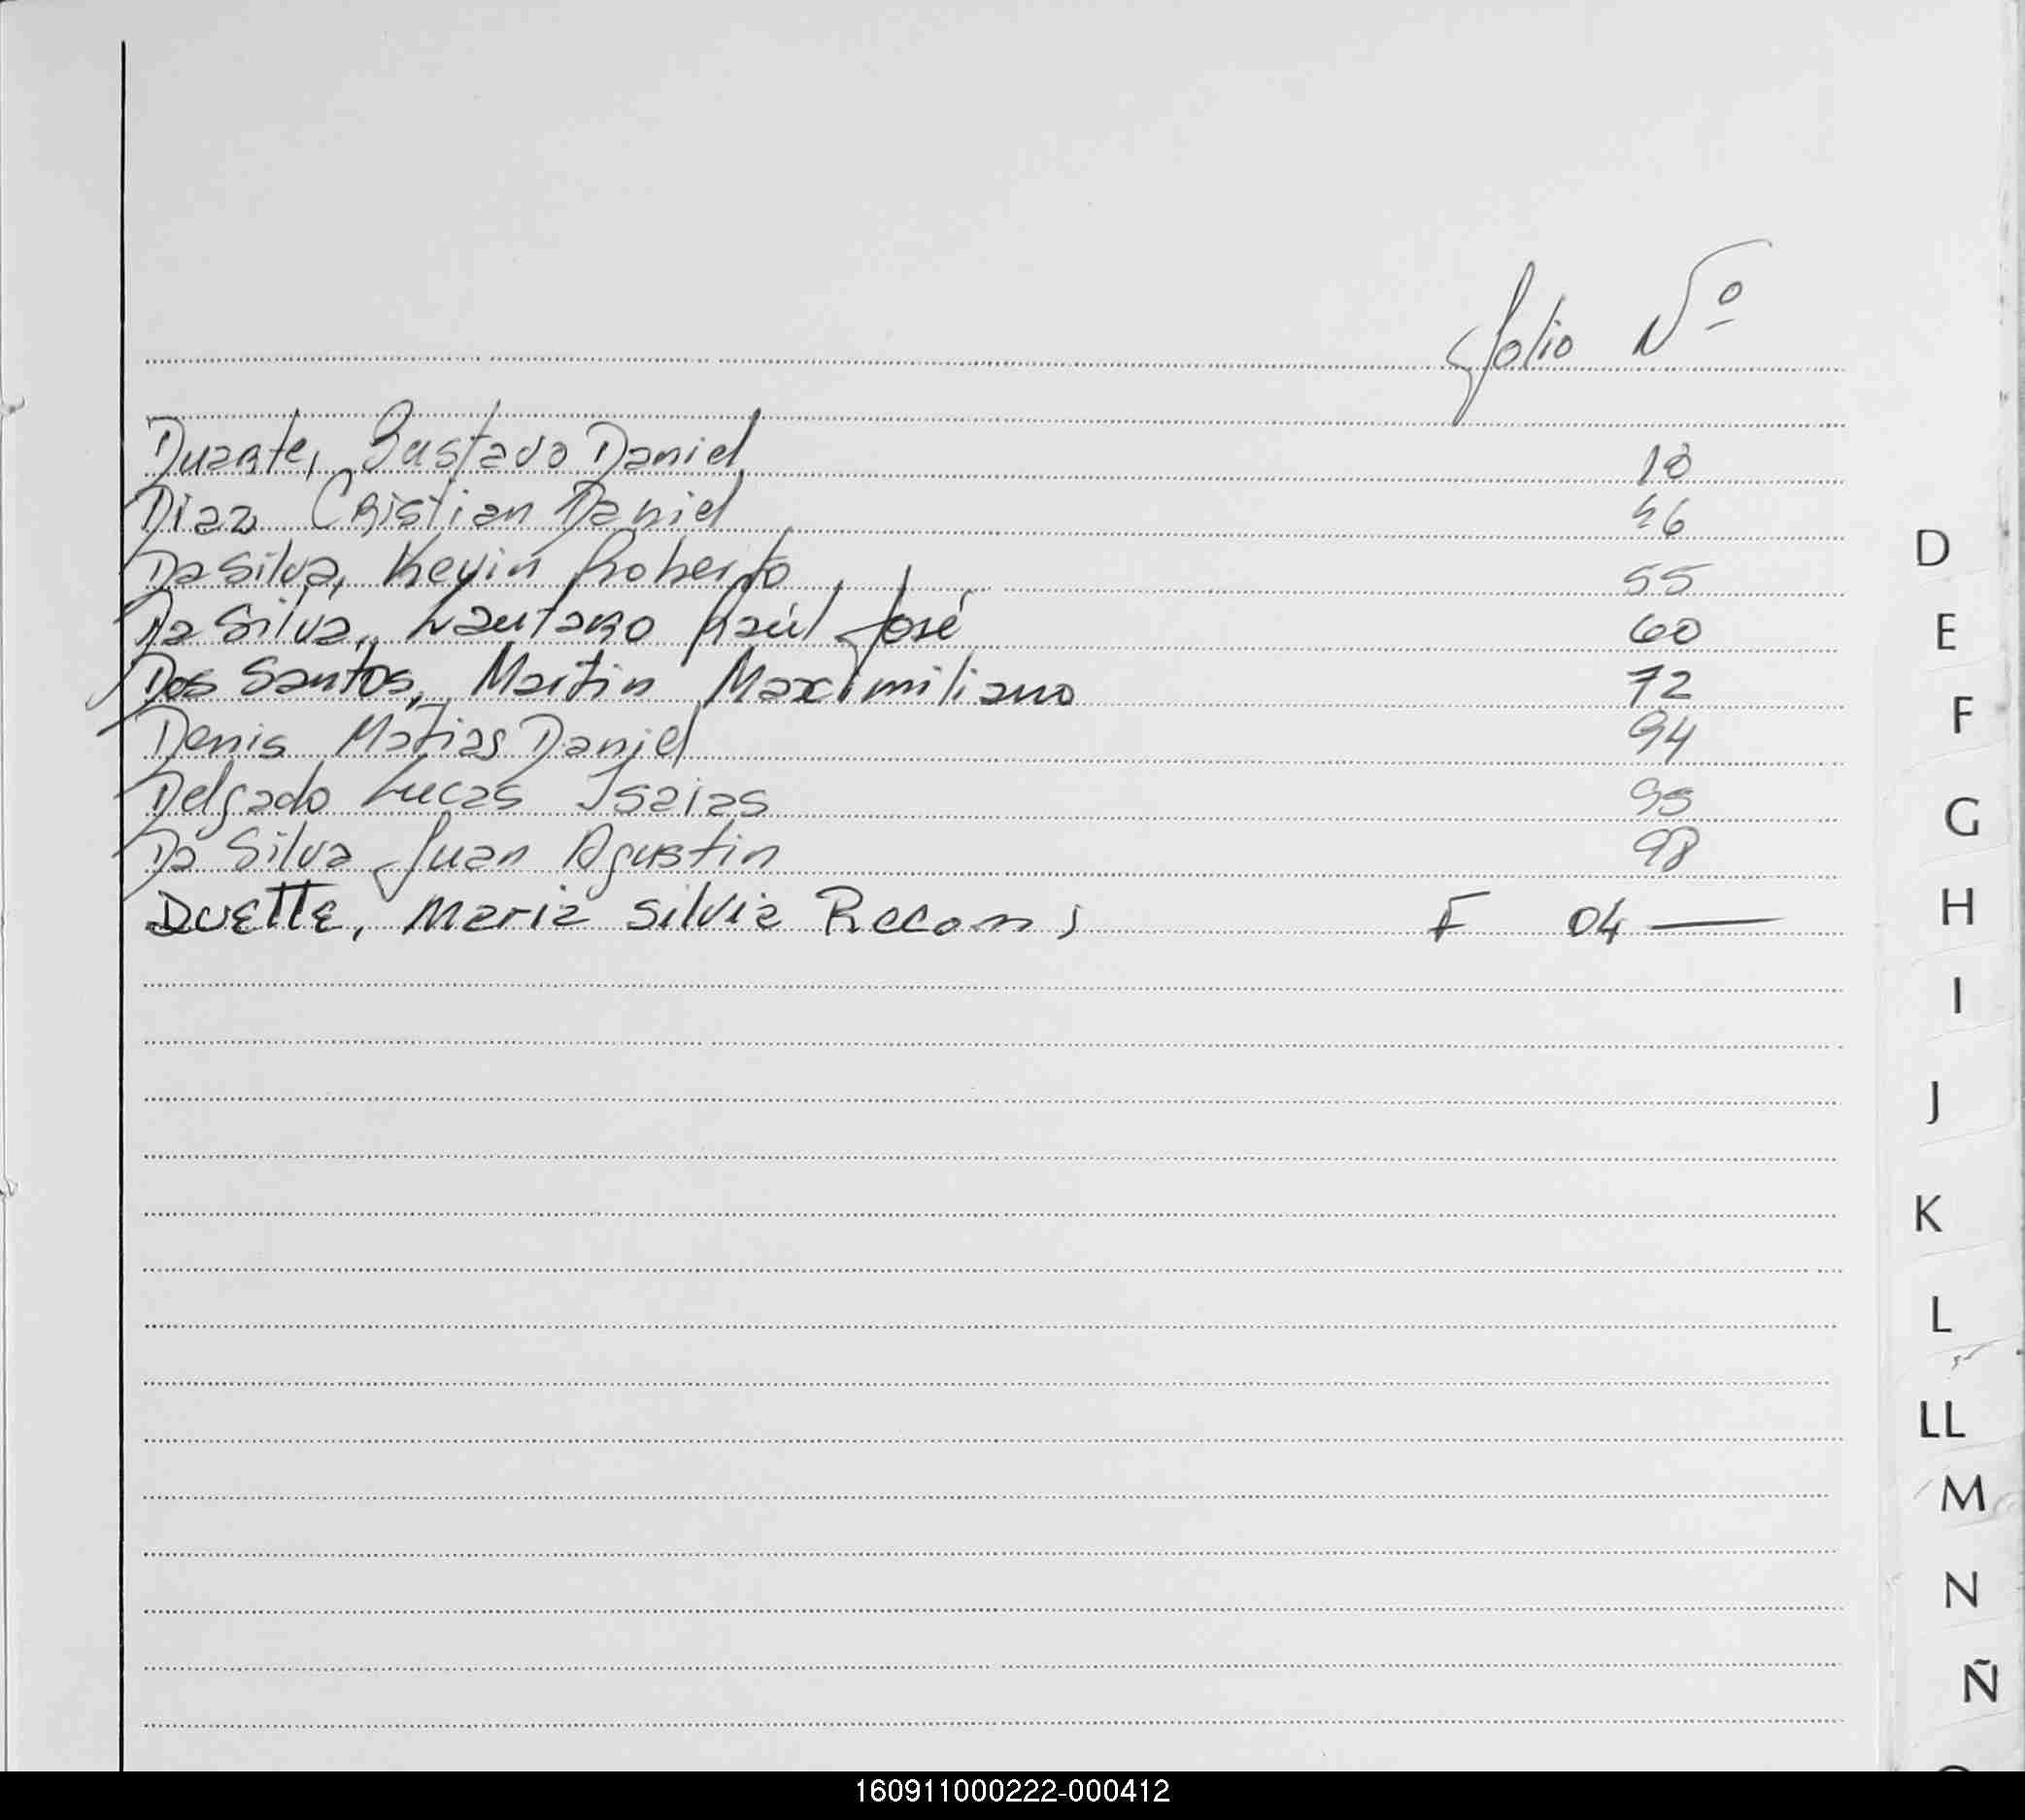 Folio Nº
Duarte, Gustavo Daniel 18
Diaz Cristian Daniel 46
Da Silva, Kevin Roberto 55
Da Silva, Lautaro Raúl José 60
Dos Santos, Martin Maximiliano 72
Denis Matias Daniel 94
Delgado Lucas Isaias 95
Da Silva Juan Agustin 98
DUETTE, Maria Silvia Recon F 04 —
D
E
F
G
H
I
J
K
L
LL
M
N
Ñ
160911000222-000412